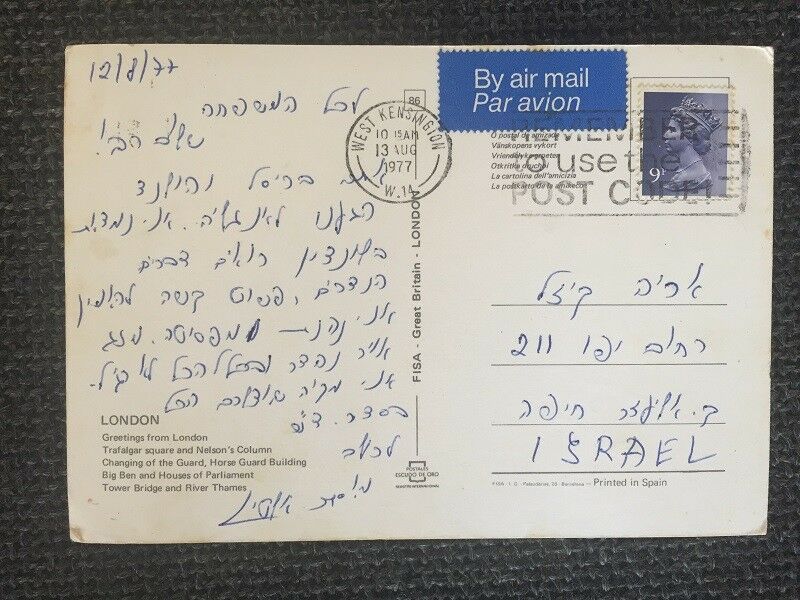 12/8/77
לכל המשפחה
שלום רב!
אחרי בריסל והולנד
הגענו לאנגליה. אני נמצאת
בלונדון רואים דברים
נהדרים, פשוט קשה להאמין
אני נהנית
אויר נהדר ובכלל הכל לגיל.
אני מקוה שאצלכם הכל
בסדר. ד"ש
לכולם
LONDON
Greetings from London
Trafalgar square and Nelson's Column
Changing of the Guard, Horse Guard Building
Big Ben and Houses of Parliament
Tower Bridge and River Thames
86
FISA - Great Britain - LONDON
POSTALES
ESCUDO DE ORO
REGISTRO INTERNACIONAL
By air mail
Par avion
WEST KENSINGTON
10 15AM
13 AUG
1977
W.14
REMEMBER
to use the
POST CODE!
9P
O postal de amizade
Vänskapens vykort
Vriendelijke groeten
Otkritka druzhbi
La cartolina dell'amicizia
La postkarto de la amikeco
אריה קיזל
רחוב יפו 211
ק. אליעזר חיפה
ISRAEL
Printed in Spain